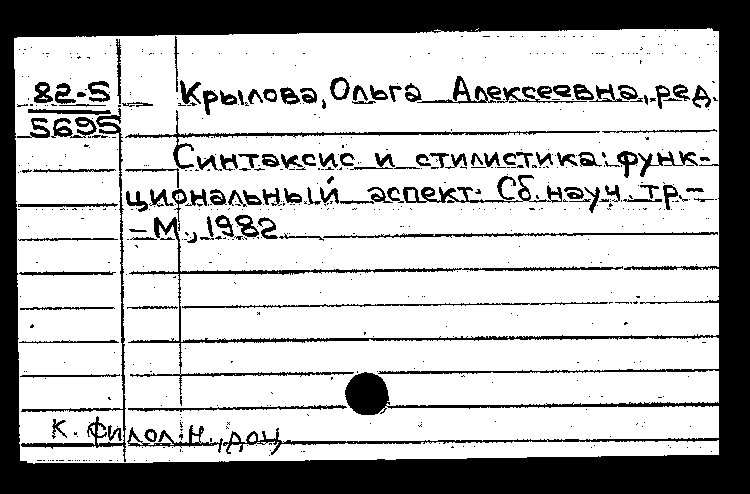 82-5 Крылова, Ольга Алексеевна, ред.
5695
Синтаксис и стилистика: функ-
циональный аспект. Сб. науч. тр.-
-М., 1982
к. филол. н., доц.